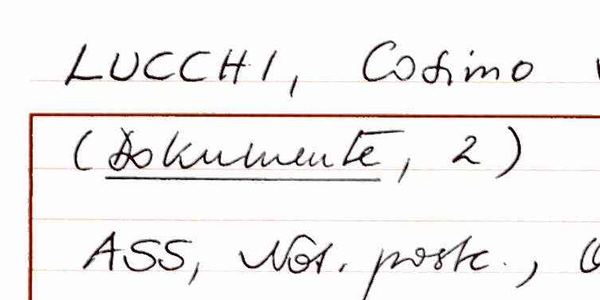 LUCCHI, Cosimo
(Dokumente, 2)
ASS, Not. postc.,